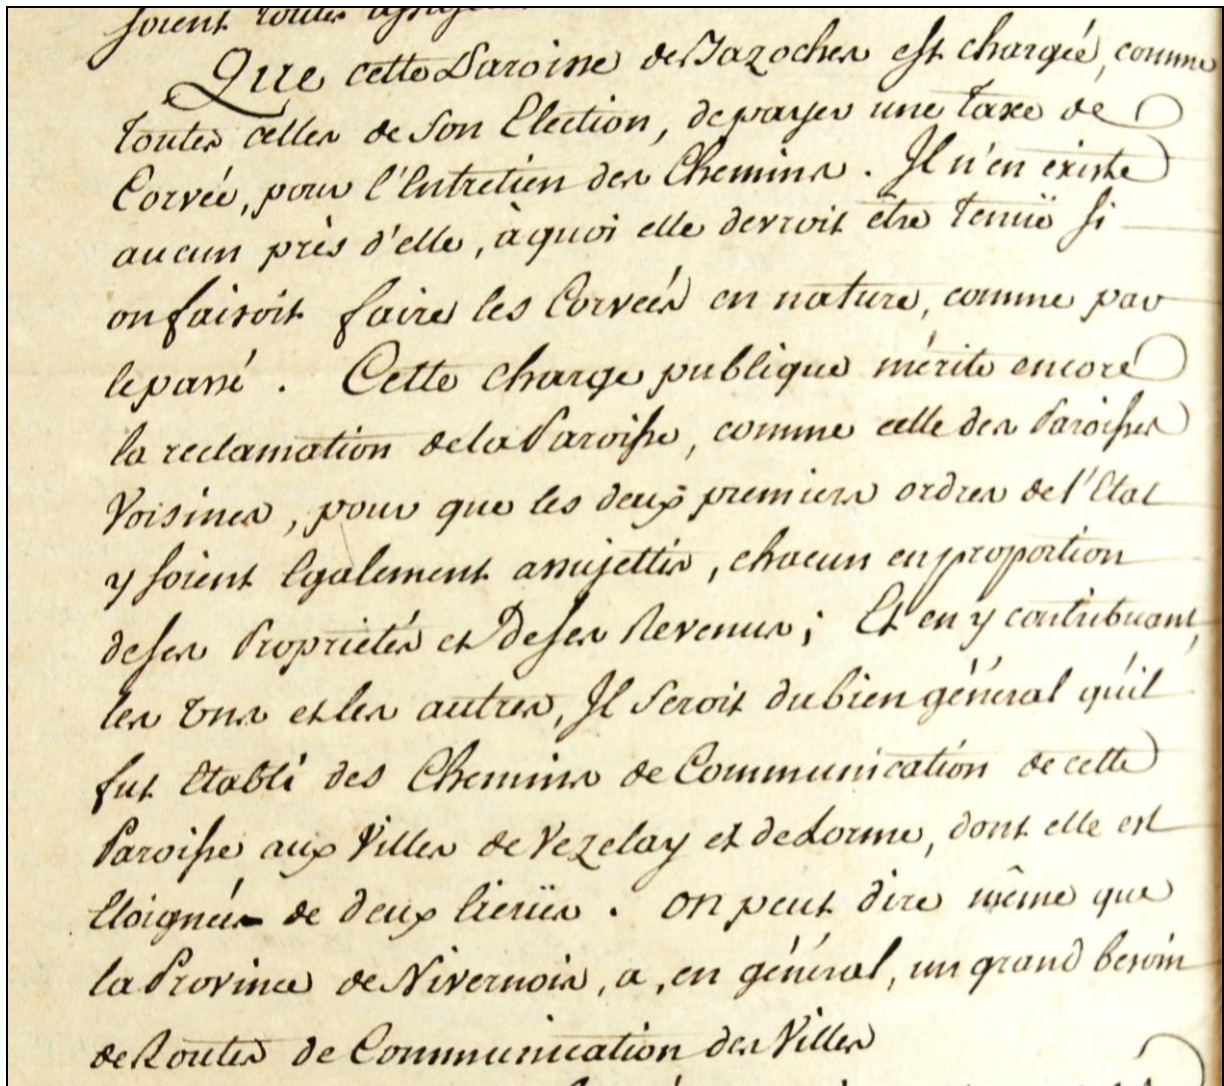 soient toutes
Que cette Paroisse de Bazoches est chargée, comme
toutes celles de son Election, de payer une taxe de
Corvée, pour l'Entretien des Chemins. Il n'en existe
aucun près d'elle, à quoi elle devroit être tenuë si
on faisoit faire les Corveés en nature, comme par
le passé. Cette charge publique mérite encore
la reclamation de la Paroisse, comme celle des Paroisses
Voisines, pour que les deux premiers ordres de l'Etat
y soient Egalement assujettis, chacun en proportion
de ses Proprietés et De ses Revenus; Et en y contribuant,
les Uns et les autres, Il seroit du bien général qu'il
fut Etabli des Chemins de Communication de cette
Paroisse aux Villes de Vezelay et de Lorme, dont elle est
Eloignée de deux lieuës. On peut dire même que
la Province de Nivernois, a, en général, un grand besoin
de Routes de Communication des Villes